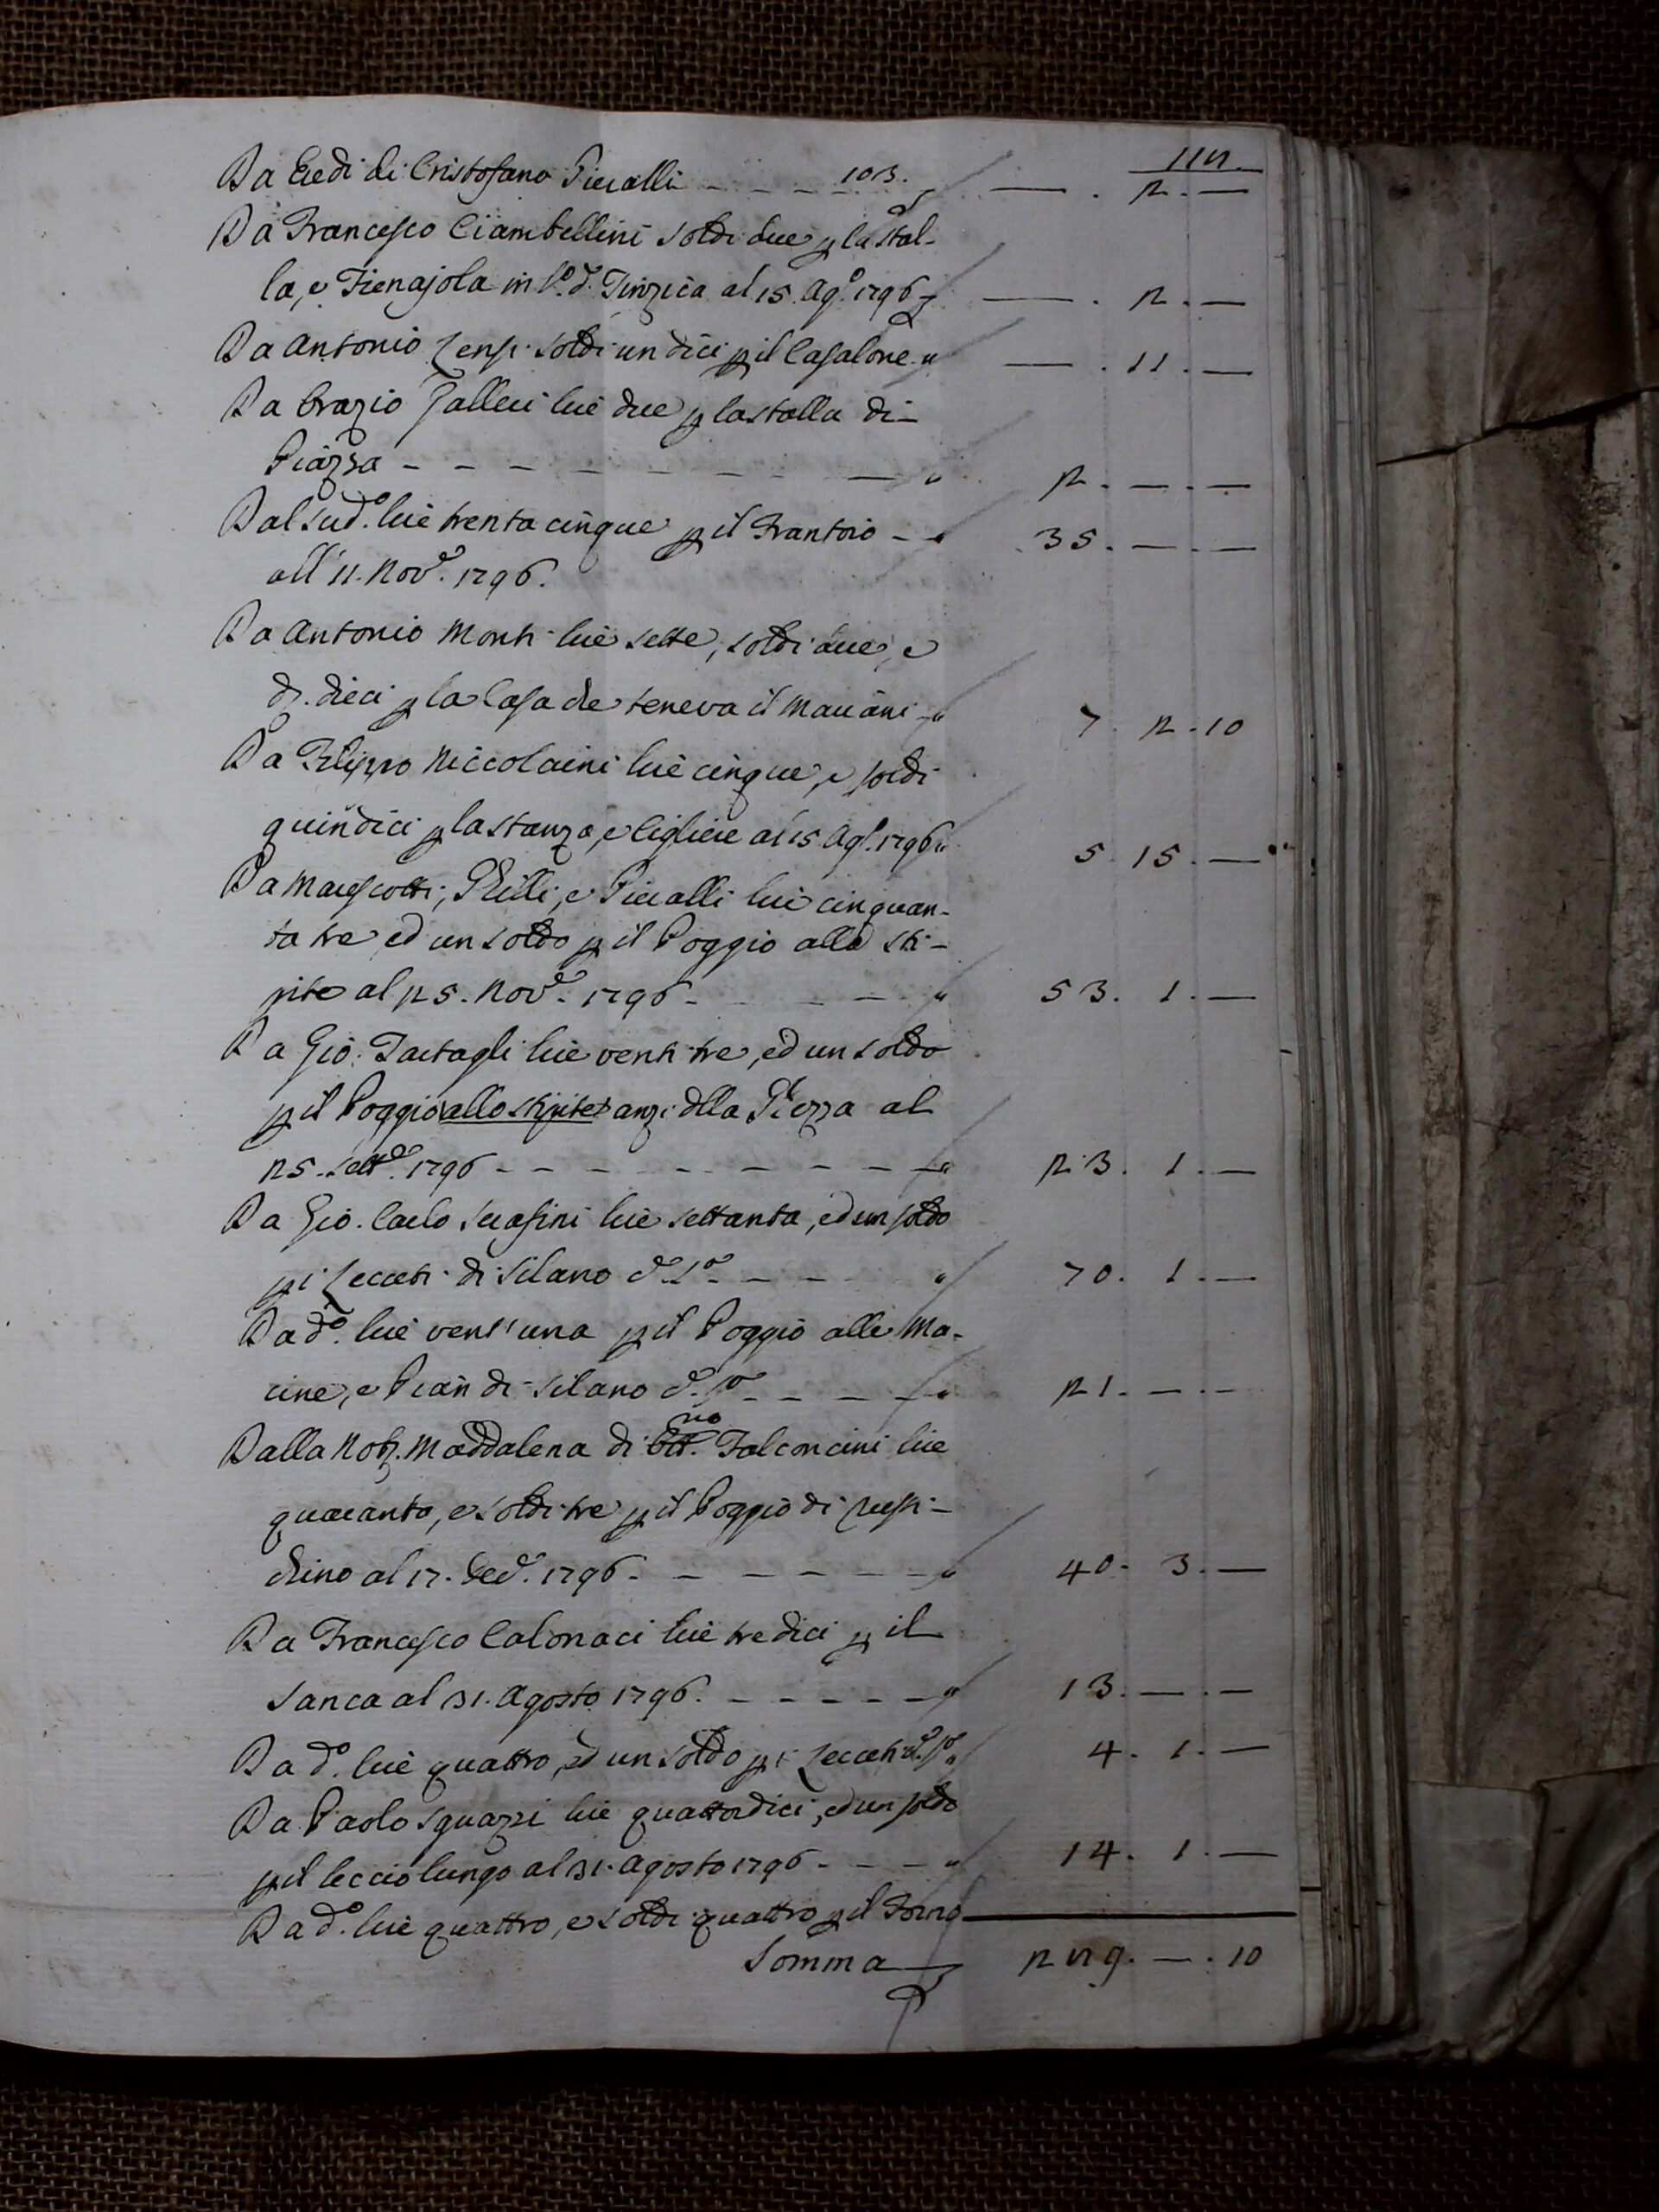 118
Da Eredi di Cristofano Pieralli - - - 103. — . 2 . —
Da Francesco Ciambellini soldi due p la Stal-
la, e Fienajola in P.o d.a Tinzica al 15. Ag.o 1796 — . 2 . —
Da Antonio Zensi soldi undici p il Casalone " — . 11 . —
Da Orazio Galleri lire due p la stalla di
Piazza - - - - - - - " 2 . — . —
Dal sud.o lire trenta cinque p il Frantoio - " 35 . — . —
all' 11. Nov.e 1796.
Da Antonio Monti lire sette, soldi due, e
d. dieci p la Casa che teneva il Marianì " 7 . 2 . 10
Da Filippo Niccolaini lire cinque, e soldi
quindici p la stanza, e Cigliere al 15 Ag.o 1796 " 5 . 15 . —
Da Marescotti, Ghilli, e Pieralli lire cinquan-
ta tre ed un soldo p il Poggio alla sti-
pite al 25. Nov.e 1796 - - - - " 53 . 1 . —
Da Gio. Tartagli lire venti tre, ed un soldo
p il Poggio allo stipite anzi dlla Piezza al
25. Sett.e 1796 - - - - - - - - " 23 . 1 . —
Da Gio. Carlo Serafini lire settanta, ed un soldo
p i Lecceti di Silano d.o - - - " 70 . 1 . —
Da d.o lire vent'una p il Poggio alle Ma-
cine, e Pian di Silano d.o - - - - " 21 . — . —
Dalla Nob. Maddalena di Ott.no Falconcini lire
quaranta, e soldi tre p il Poggio di
al 17. 1796 - - - - - - - " 40 . 3 . —
Da Francesco Calonaci lire tredici p il
Sanca al 31. Agosto 1796. - - - - - " 13 . — . —
Da d.o lire quattro, ed un soldo p i Lecceti " 4 . 1 . —
Da Paolo Sguazzi lire quattordici, ed un soldo
p il leccio lungo al 31. Agosto 1796 - - - - " 14 . 1 . —
Da d.o lire quattro, e soldi quattro p il Forno
Somma 289 . — . 10